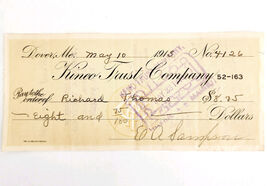 Dover, Me. May 10 1915 No. 4126
Kineo Trust Company 52-163
Pay to the order of Richard Thomas $8.75
Eight and 75/100 Dollars
C A Sampson